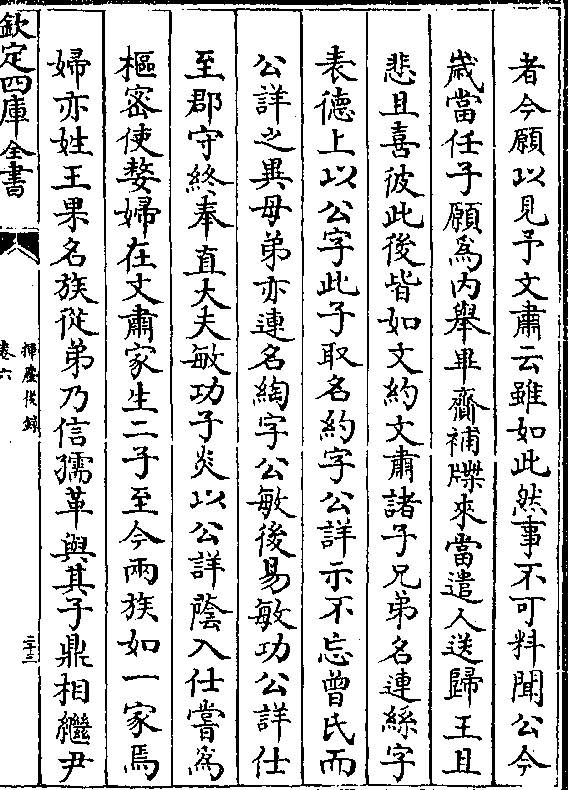 者今願以見予文肅云雖如此然事不可料聞公今
歲當任子願爲内舉畢齋補牒來當遣人送歸王且
悲且喜彼此後皆如文約文肅諸子兄弟名連絲字
表德上以公字此子取名約字公詳示不忘曾氏而
公詳之異母弟亦連名綯字公敏後易敏功公詳仕
至郡守終奉直大夫敏功子炎以公詳蔭入仕嘗爲
樞密使婺婦在文肅家生二子至今兩族如一家焉
婦亦姓王果名族從弟乃信孺革與其子鼎相繼尹
欽定四庫全書
揮麈後錄
卷六
二十三